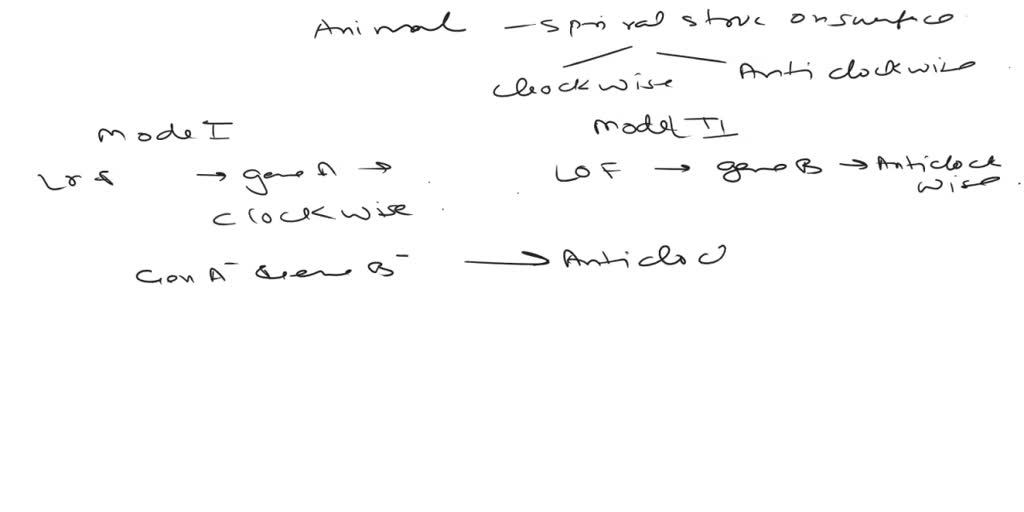 Animal — spiral struc on surface
Clockwise Anticlockwise
Mode I Model II
LOF → gene A → LOF → gene B → Anticlock
Clockwise wise
Gen A⁻ & Gene B⁻ → Anticloc